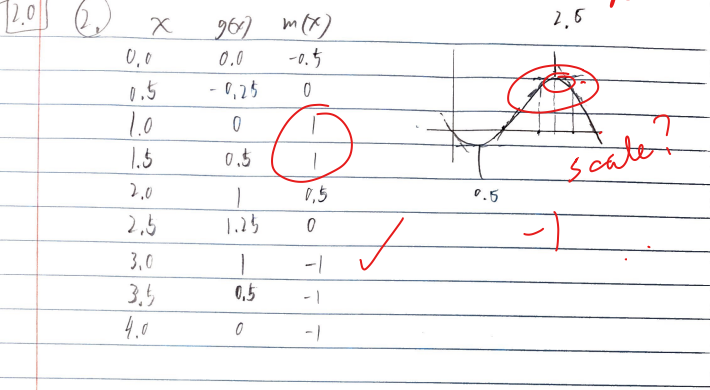 2.0 2. x g(x) m(x) 2.5
0.0 0.0 -0.5
0.5 -0.25 0
1.0 0 1
1.5 0.5 1 scale?
2.0 1 0.5 0.5
2.5 1.25 0 -1
3.0 1 -1
3.5 0.5 -1
4.0 0 -1